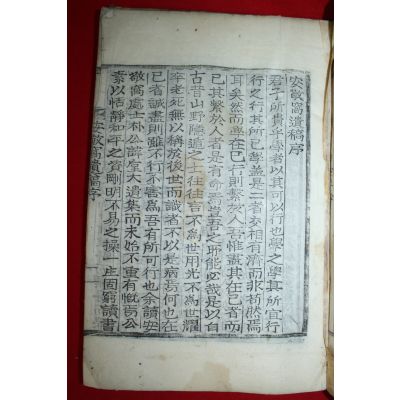 安敬窩遺稿序
君子所貴乎學者以其可以行也學之學其所宜行
行之行其所已學盖是二者交相有濟而非焉
耳矣然而學在已行則繫於人吾惟盡其在已者而
已其繫於人者是有命焉豈吾之所能必哉是以自
古昔山野隱遁之士往往言不為世用光不為世耀
卒老死無以稱於後世而識者不以是病焉何也在
已者誠盡則雖不行不害為吾有所可行也余讀安
敬窩處士朴公諱大遺集而未始不重有慨焉公
素以恬靜和平之資剛明不易之操一固窮讀書
安敬窩遺稿序